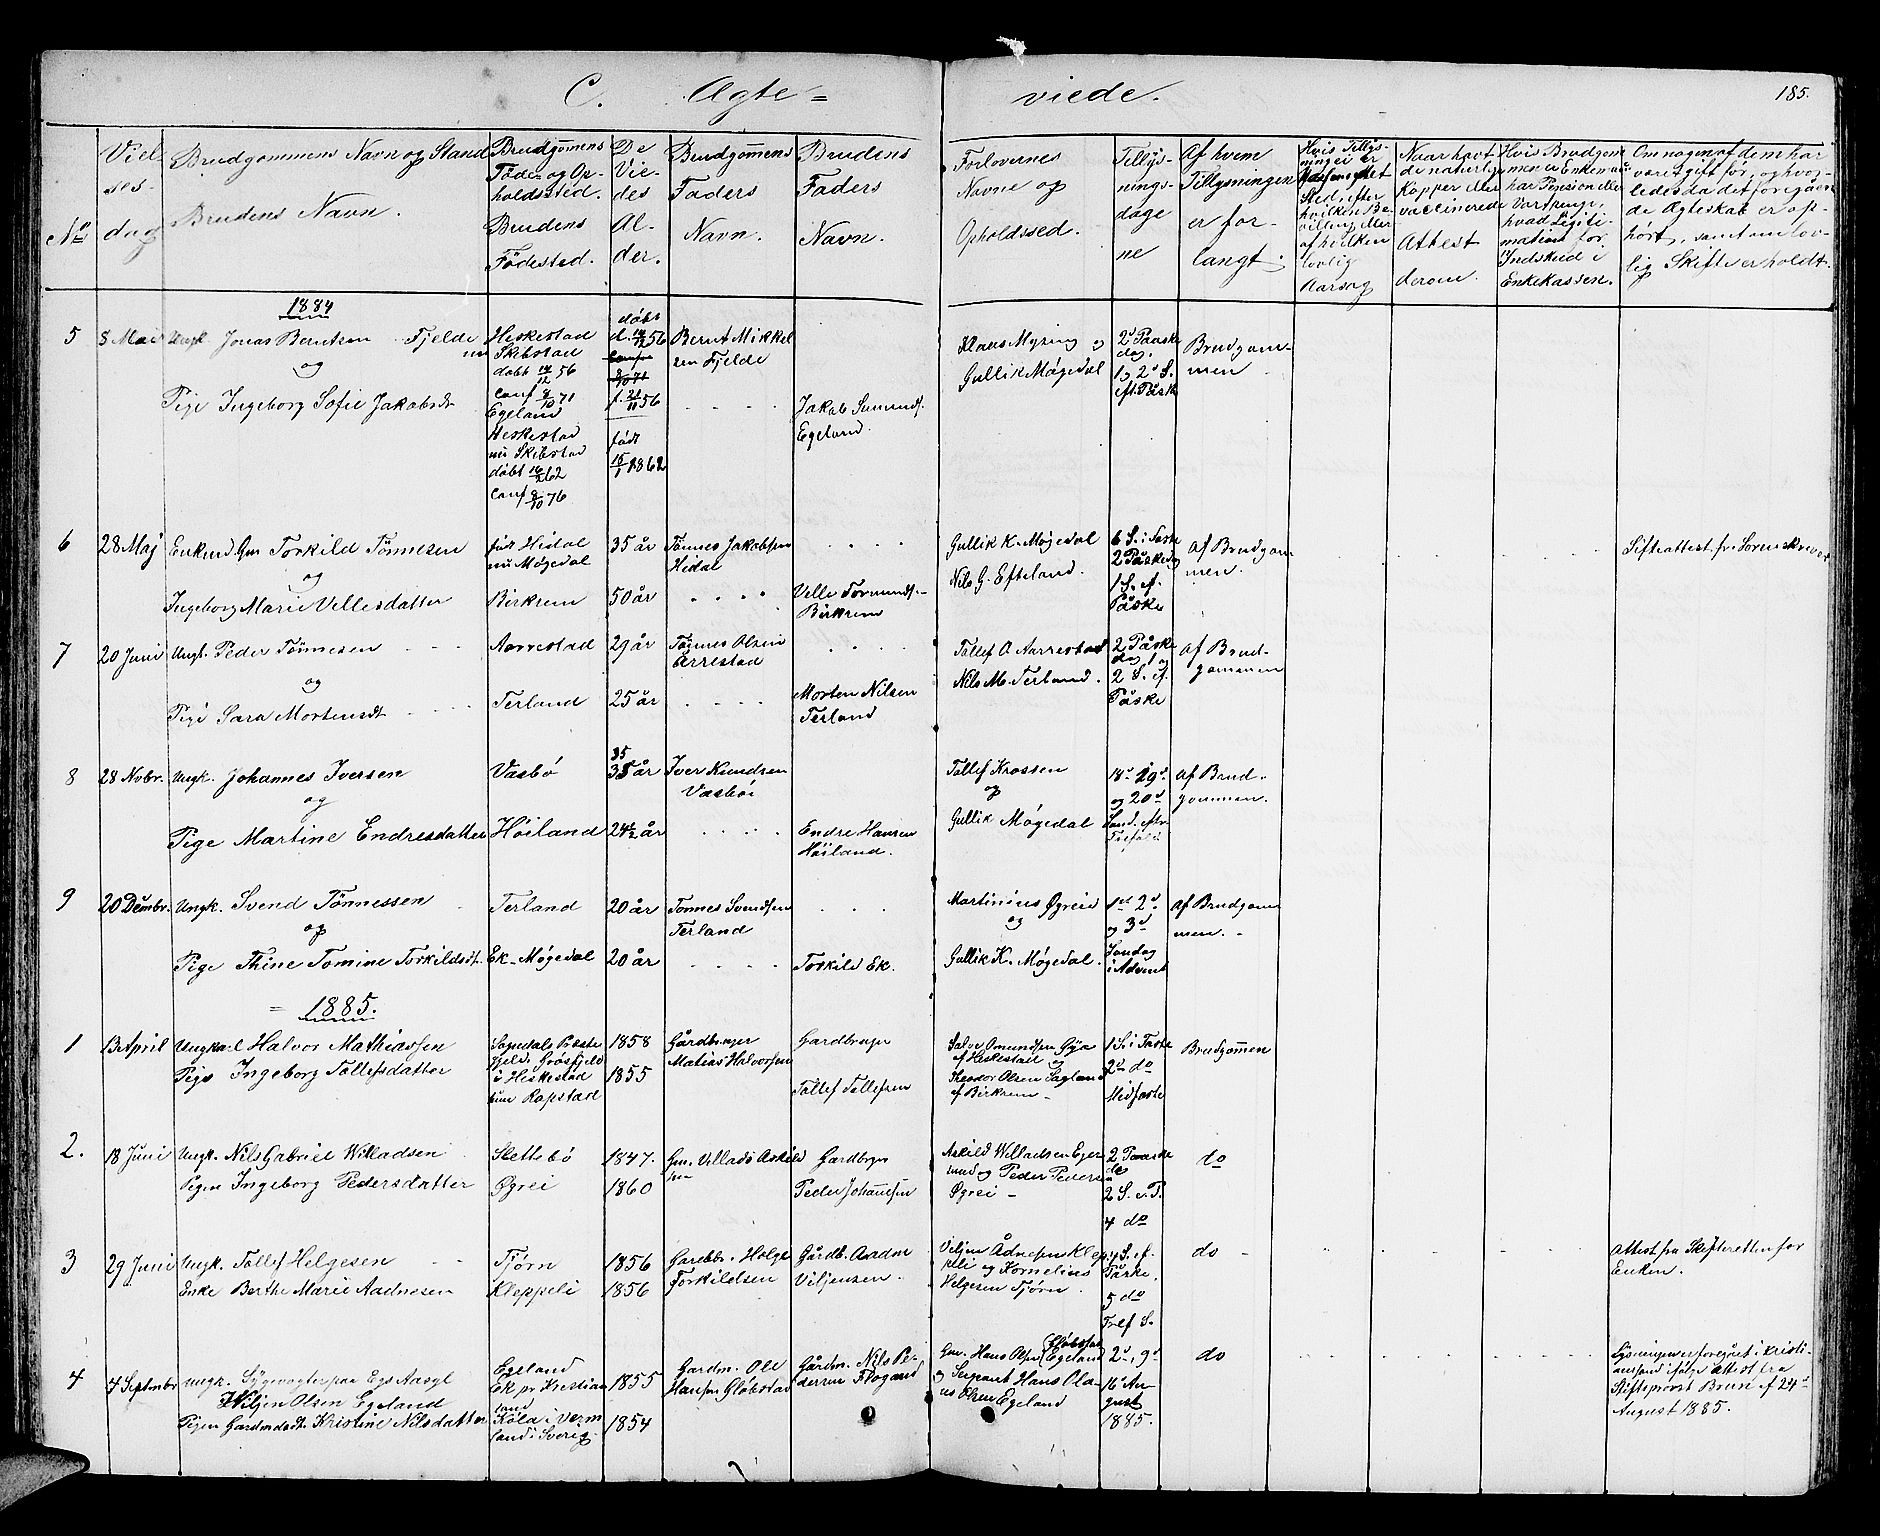 C. Ægte= viede. 185.
No
Viel-
ses-
dag
Brudgommens Navn og Stand
Brudens Navn.
Brudgomens
Føde- og Op-
holdssted.
Brudens
Fødested.
De
Vie-
des
Al-
der.
Brudgomens
Faders
Navn.
Brudens
Faders
Navn.
Forlovernes
Navne og
Opholdssed.
Tillys-
nings-
dage
ne
Af hvem
Tillysningen
er for-
langt.
Hvis Tillys-
ninger er
Sted, efter
hvilken Be-
villing eller
af hvilken
lovlig
Aarsag
Naar havt
de naturlige
Kopper eller
vaccinerede
Attest
derom.
Hvis Brudgom-
men er Enkemand
har Pension eller
Vartpenge,
hvad Legiti-
mation for
Indskud i
Enkekassen.
Om nogen af dem har
været gift før, og hvor-
ledes da det foregaaen-
de Ægteskab er op-
hørt, samt om lov-
lig Skifte er holdt.
1884
5 8 Mai Ungk Jonas Berntsen Fjelde
og
Pige Ingeborg Sofie Jakobsdt
Heskestad
nu Skibstad
døbt 14/12 56
Conf 8/10 71
Egeland
Heskestad
nu Skibstad
døbt 16/2 62
Conf 8/10 76
døbt
d. 14/12 56
Conf
8/10 71
f. 21/11 56
født
15/1 1862
Bernt Mikkel
sen Fjelde
Jakob
Egeland.
Klaus Mysing og
Gullik Møgedal
2d Paaske
dag.
1 og 2 S.
eft. Påsk
Brudgom-
men
6 28 Maj Enkemd. Gm Torkild Tønnesen
og
Ingeborg Marie Vellesdatter
født Hidal
nu Møgedal
Birkrem
35 år
50 år
Tønnes Jakobsen
Hidal
Velle Tormundsen
Birkrem
Gullik K. Møgedal
Nils G. Efteland.
6 S. i Faste
2 Påskedag
1 S. ef.
Påske
af Brudgom
men.
Sifteattest fr. Sorenskriver
7 20 Juni Ungk. Peder Tønnesen
og
Pige Sara Mortensdt
Aarrestad
Terland
29 år
25 år
Tønnes Olsen
Arrestad
Morten Nilsen
Terland
Tollef O. Aarrestad
Nils M. Terland.
2 Påske
dag 1 og
2 S. ef.
Påske
af Brud-
gommen
8 28 Novbr. Ungk. Johannes Iversen
og
Pige Martine Endresdatter
Vasbø
Høiland
35
35 år
24½ år
Iver Knudsen
Vasbø
Endre Hansen
Høiland.
Tollef Krossen
og
Gullik Møgedal
18d 19d
og 20d
Sønd. efter
af Brud-
gommen.
9 20 Dembr. Ungk. Svend Tønnessen
og
Pige Thine Tomine Torkildsdt.
Terland
Ek-Møgedal
20 år
20 år
Tønnes Svendsen
Terland
Torkild Ek.
Martinius Øgreid
og
Gullik K. Møgedal.
1st 2d
og 3d
Søndag
i Advent
af Brudgom
men.
1885.
1 13 April Ungkarl Halvor Mathiassen
Pige Ingeborg Tollefsdatter
Sogndals Præste
gjeld. Grøsfjeld
i Heskestad
Rapstad
1858
1855
Gårdbruger
Matias Halvorsen
Gardbruger
Tollef Tollefsen
Salve Omundsen Gya
af Heskestad og
Theodor Olsen Sagland
af Birkrem
1 S. i Faste
2den do
Midfaste
Brudgommen
2. 18 Juni Ungk. Nils Gabriel Willadsen
Pigen Ingeborg Pedersdatter
Slettebø
Øgrei
1847.
1860
Gm. Villads Askild
sen
Gardbrger
Peder Johannsen
Askild Willadsen Eger
sund og Peder Pedersen
Øgrei
2 Paaske
dag
2 S. e. P.
4 do
do
3 29 Juni Ungk. Tollef Helgesen
Enke Berthe Marie Aadnesen
Tjørn
Kleppeli
1856
1856
Gardbr. Helge
Torkildsen
Gårdb. Aadne
Viljensen.
Viljen Ådnesen Klep
peli og Kornelius
Helgesen Tjørn.
4 S. ef.
Påske.
5 do
Tref S.
do
Attest fra Skifteretten for
Enken.
4 4 Septmbr Ungk. Sygevogter paa Egs Aasyl
Wiljen Olsen Egeland
Pigen Gardmdatt. Kristine Nilsdatter
Egeland
Ek pr Kristian
sand
Kola i Verm
land i Sverig
1855
1854
Gardm. Ole
Hansen Gløbstad
Gårdm. Nils Pe-
dersen
Gm. Hans Olsen (Gløbstad
Egeland
og Sergeant Hans Ola-
us Olsen Egeland
2d, 9d
16 Au-
gust
1885.
do
Lysningen er foregået i Kristi-
ansand ifølge Attest fra
Stiftsprovst Brun af 24d
August 1885.